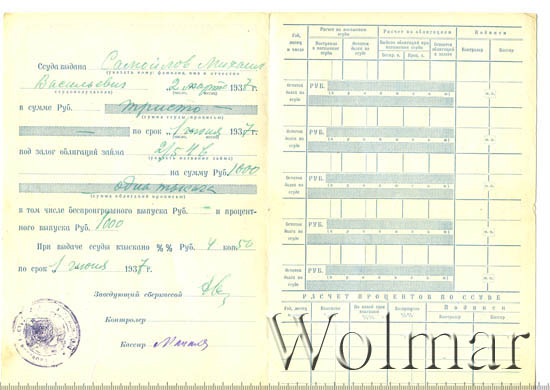 Ссуда выдана Самойлов Михаил
(указать кому: фамилия, имя и отчество
Васильевич 2 марта 1937 г.
в сумме Руб. триста
(сумма ссуды прописью)
— по срок 1 июня 1937 г.
под залог облигаций займа
(указать название займа)
на сумму Руб. 1000
одна тысяча
(сумма облигаций прописью)
в том числе беспроигрышного выпуска Руб. — и процент-
ного выпуска Руб. 1000
При выдаче ссуды взыскано %% Руб. 4 коп. 50
по срок 1 июня 1937 г.
Заведующий сберкассой
Контролер
Кассир
Год, месяц и число
Расчет по ссуде
Расчет по облигациям
Подписи
Поступило в погашение ссуды
Остаток долга по ссуде
Выдано облигаций при погашении ссуды
Остается облигаций в залоге
Контролер
Кассир
Остаток долга по ссуде
РУБ.
(прописью)
м. п.
Остаток долга по ссуде
РУБ.
(прописью)
м. п.
Остаток долга по ссуде
РУБ.
(прописью)
м. п.
Остаток долга по ссуде
РУБ.
(прописью)
м. п.
Остаток долга по ссуде
РУБ.
(прописью)
м. п.
РАСЧЕТ ПРОЦЕНТОВ ПО ССУДЕ
Год, месяц
Взыскано
По какой срок взыскано %%
Возвращено %%
Подписи
Контролер
Кассир
Wolmar